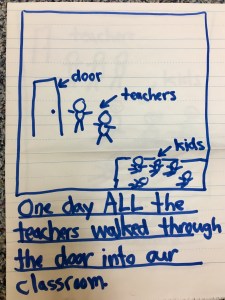 door
teachers
kids
One day ALL the
teachers walked through
the door into our
classroom.